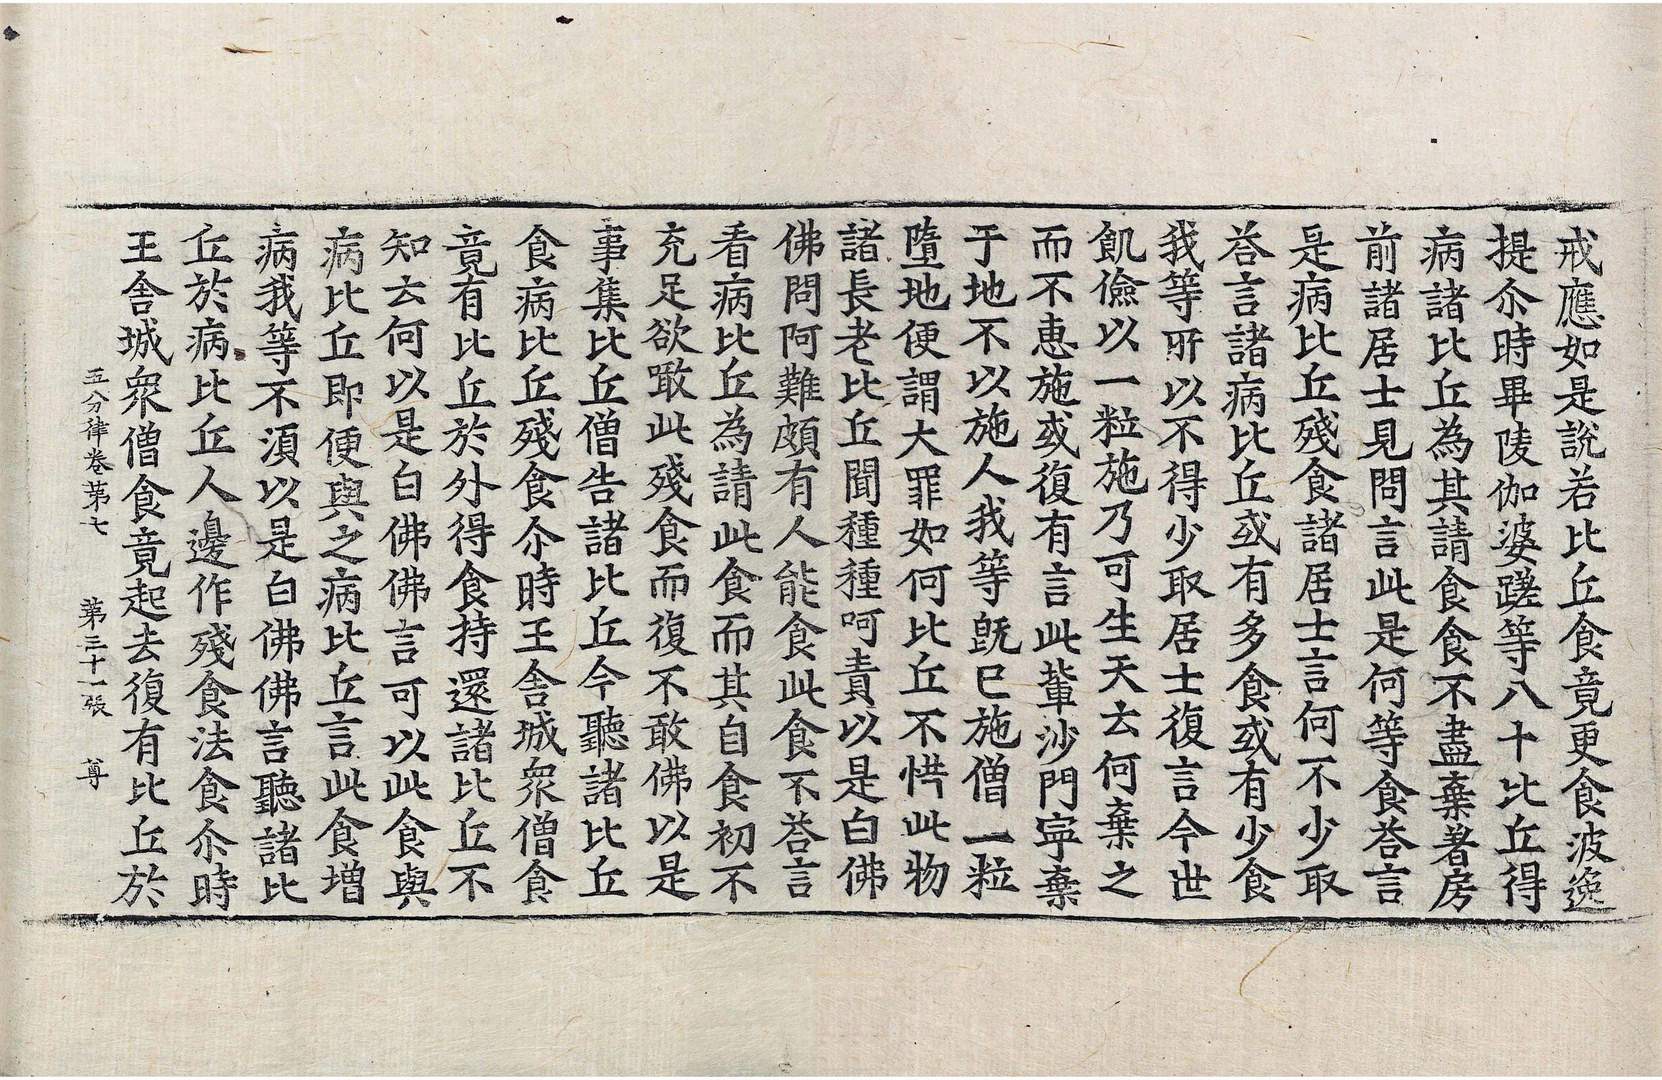 戒應如是說若比丘食竟更食波逸
提尒時畢陵伽婆蹉等八十比丘得
病諸比丘為其請食食不盡棄著房
前諸居士見問言此是何等食荅言
是病比丘殘食諸居士言何不少取
荅言諸病比丘或有多食或有少食
我等所以不得少取居士復言今世
飢儉以一粒施乃可生天云何棄之
而不惠施或復有言此輩沙門寧棄
于地不以施人我等旣已施僧一粒
墮地便謂大罪如何比丘不惜此物
諸長老比丘聞種種呵責以是白佛
佛問阿難頗有人能食此食不荅言
看病比丘為請此食而其自食初不
充足欲噉此殘食而復不敢佛以是
事集比丘僧告諸比丘今聽諸比丘
食病比丘殘食尒時王舍城眾僧食
竟有比丘於外得食持還諸比丘不
知云何以是白佛佛言可以此食與
病比丘即便與之病比丘言此食增
病我等不須以是白佛佛言聽諸比
丘於病比丘人邊作殘食法食尒時
王舍城眾僧食竟起去復有比丘於
五分律卷第七 第三十一張 尊